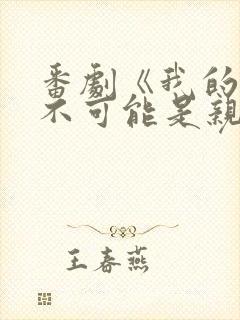 番劇《我的
不可能是親
王春燕